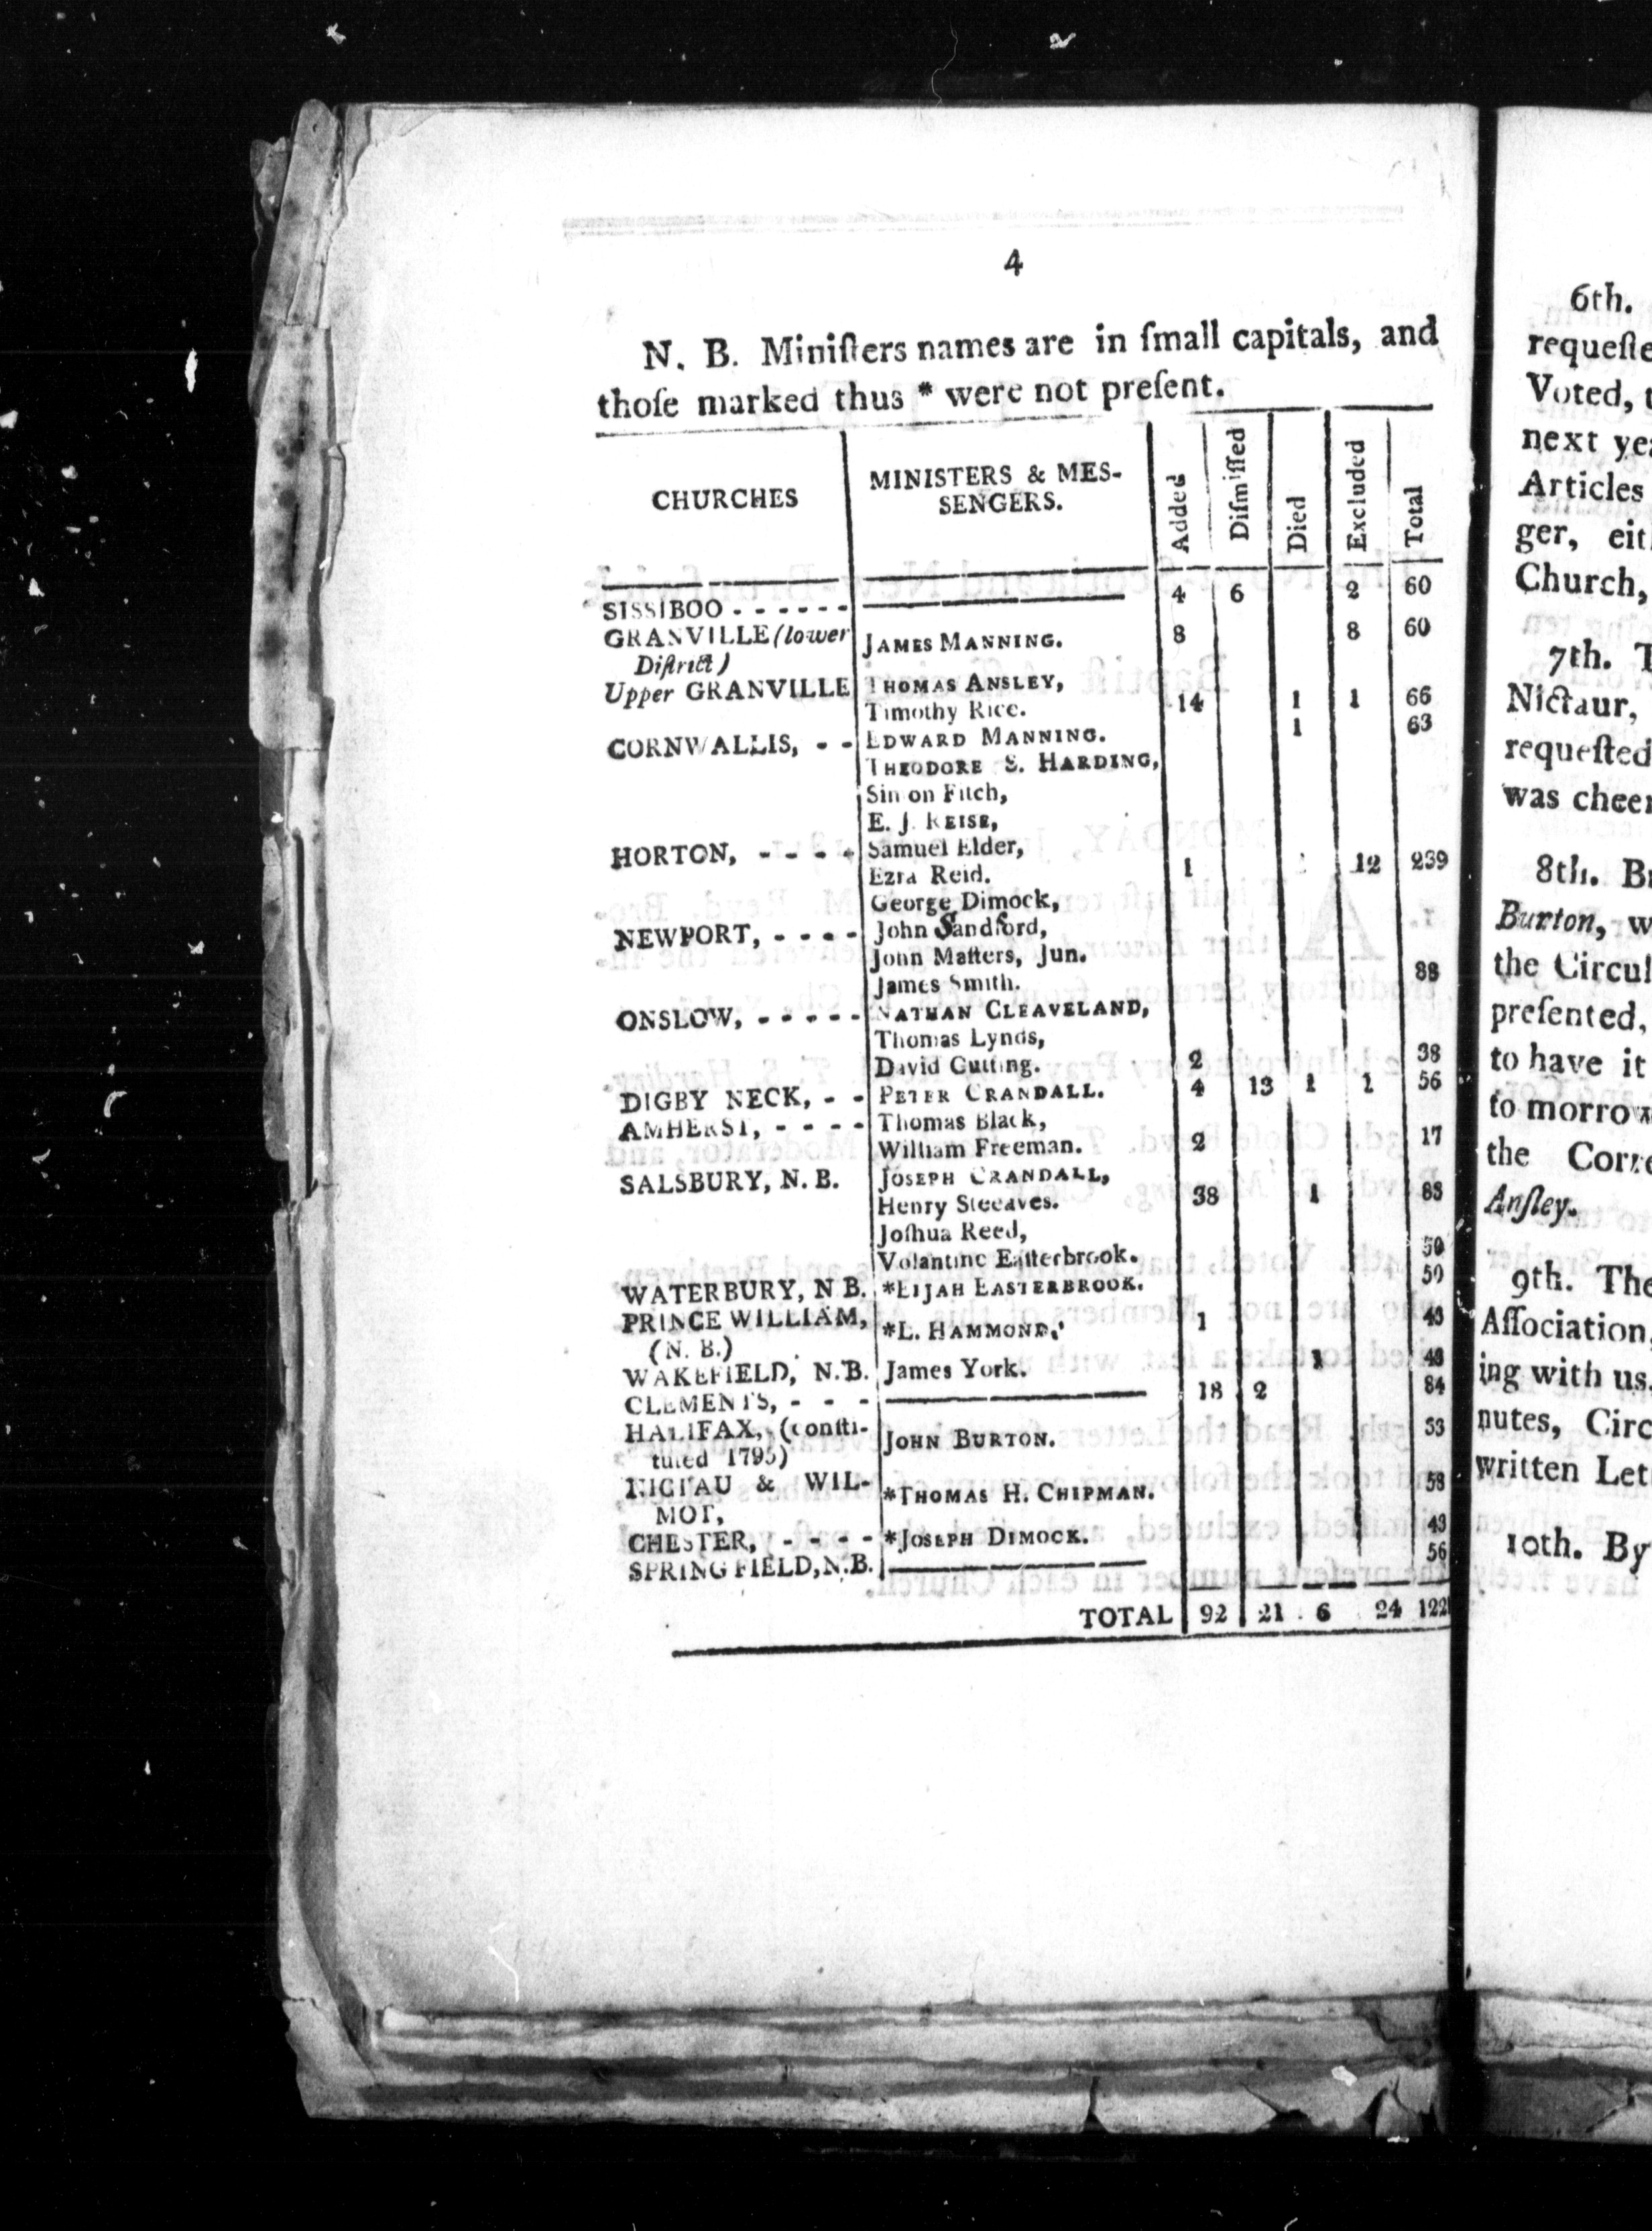 4
N. B. Miniſters names are in ſmall capitals, and
thoſe marked thus * were not preſent.
CHURCHES MINISTERS & MES-
SENGERS. Added Diſmiſſed Died Excluded Total
SISSIBOO - - - - - - 4 6 2 60
GRANVILLE (lower
Diſtrict) JAMES MANNING. 8 8 60
Upper GRANVILLE THOMAS ANSLEY,
Timothy Rice. 14 1 1 66
CORNWALLIS, - - EDWARD MANNING. 1 63
THEODORE S. HARDING,
Simon Fitch,
E. J. REISE,
HORTON, - - - - Samuel Elder,
Ezra Reid. 1 12 239
George Dimock,
NEWPORT, - - - - John Sandford,
John Maſters, Jun.
James Smith. 88
ONSLOW, - - - - - NATHAN CLEAVELAND,
Thomas Lynds,
David Cutting. 2 38
DIGBY NECK, - - PETER CRANDALL. 4 13 1 1 56
AMHERST, - - - - Thomas Black,
William Freeman. 2 17
SALSBURY, N. B. JOSEPH CRANDALL,
Henry Steeaves. 38 1 88
Joſhua Reed,
Volantine Eaſterbrook. 50
WATERBURY, N B. *ELIJAH EASTERBROOK. 50
PRINCE WILLIAM,
(N. B.) *L. HAMMOND, 1 43
WAKEFIELD, N. B. James York. 1 48
CLEMENTS, - - - 18 2 84
HALIFAX, (conſti-
tuted 1795) JOHN BURTON. 53
NICTAU & WIL-
MOT, *THOMAS H. CHIPMAN. 58
CHESTER, - - - - *JOSEPH DIMOCK. 43
SPRINGFIELD, N. B. 56
TOTAL 92 21 6 24 122
6th.
requeſte
Voted,
next ye
Articles
ger, eit
Church,
7th. T
Nictaur,
requeſted
was cheer
8th. B
Burton, w
the Circul
preſented,
to have it
to morrow
the Corre
Anſley.
9th. The
Aſſociation,
ing with us.
nutes, Circ
written Let
10th. By